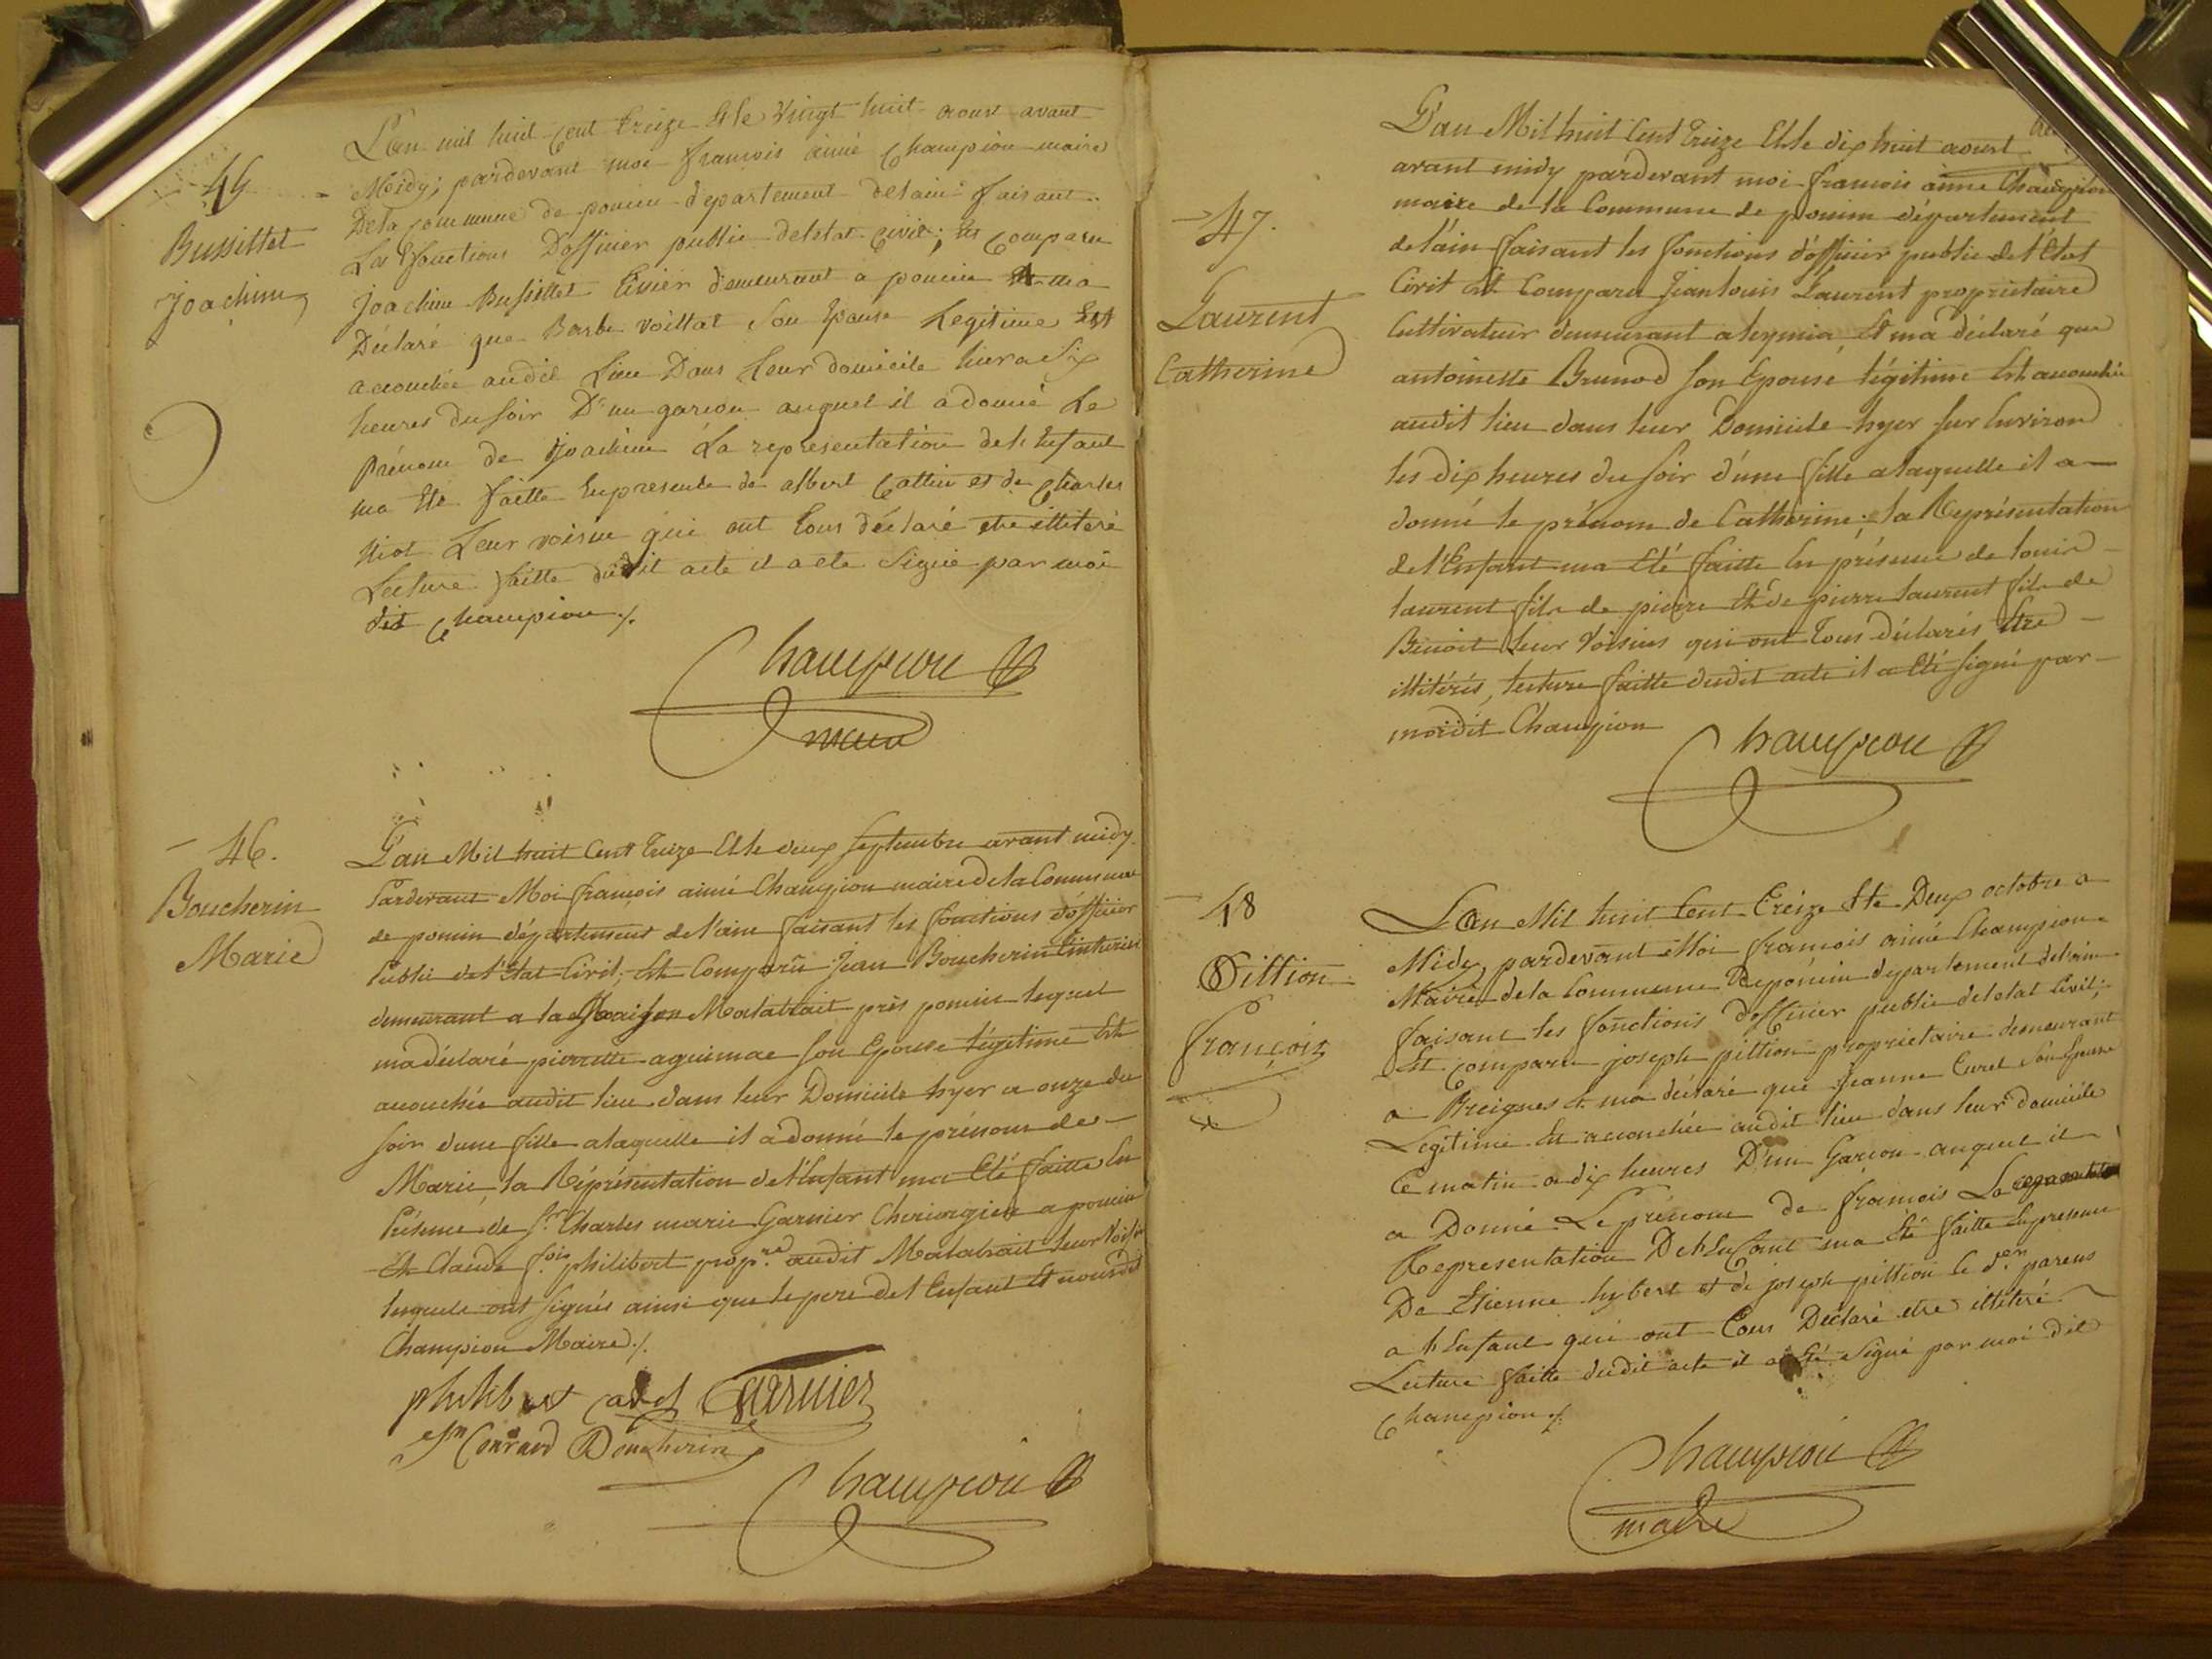 45
Bussillet
Joachim
L'an mil huit cent treize & le vingt huit aoust avant
Midy; pardevant moi françois aimé Champion maire
De la commune de poncin departement delain faisant
Les fonctions D'officier public deletat civil; Est comparu
joachim Bussillet demeurant a poncin & ma
Déclaré que Barbe voillat son Epouse Legitime Est
accouchée audit Lieu Dans Leur domicile hier a six
heures du soir D'un garcon auquel il a donné Le
Prénom de Joachim La representation de l'Enfant
ma Eté faitte En presence de albert Cattin et de Charles
Niot Leur voisin qui ont tous déclaré etre illiteré
Lecture faitte dudit acte il a ete signé par moi
dit Champion ./.
Champion
maire
46.
Boucherin
Marie
L'an Mil huit Cent treize Et le deux septembre avant midy
Pardevant Moi françois aimé Champion maire de la Commune
de poncin département de l'ain faisant les fonctions d'officier
Public de l'Etat Civil; Est Comparu Jean Boucherin
demeurant a la Maison Malatrait près poncin lequel
ma déclaré pierrette aguimac son Epouse légitime Est
accouchée audit lieu dans leur Domicile hyer a onze du
soir d'une fille alaquelle il a donné le prénom de
Marie, la Réprésentation de l'Enfant ma Eté faitte En
Présence de Sr. Charles marie Garnier Chirurgien a poncin
Et Claude fois. philibert propre. audit Malatrait leur voisin
lesquels ont signés ainsi que le pere de l'Enfant Et nous dit
Champion Maire ./.
philibert cadet Garnier
Jn Conrard Boucherin
Champion
47.
Laurent
Catherine
L'an Mil huit Cent treize Et le dix huit aoust
avant midy pardevant moi françois aimé Champion
maire de la Commune de poncin département
de l'ain faisant les fonctions d'officier public de l'Etat
Civil Est Comparu Jean louis Laurent proprietaire
Cultivateur demeurant a leymia, Et ma déclaré que
antoinette Brunod son Epouse légitime Est accouchée
audit lieu dans leur Domicile hyer sur Environ
les dix heures du soir d'une fille a laquelle il a
donné le prénom de Catherine; la Représentation
de l'Enfant ma Eté faitte En présence de louis
laurent fils de pierre Et de pierre laurent fils de
Benoit leur Voisins qui ont tous déclarés Etre
illitérés, lecture faitte dudit acte il a Eté signé par
moidit Champion
Champion
48
Pittion
françois
L'an Mil huit Cent treize & le Deux octobre a
Midy pardevant Moi françois aimé Champion
Maire de la Commune De poncin departement delain
faisant les fonctions d'officier public deletat Civil;
Est comparu joseph pittion proprietaire demeurant
a Breignes & ma déclaré que Jeanne Curel son Epouse
Legitime Est accouchée audit lieu dans leur domicile
Ce matin a dix heures D'un Garcon auquel il
a Donné Le prénom de françois La
Representation De l'Enfant ma Eté faitte En presence
De Etienne hybert et de joseph pittion le der. parens
a l'Enfant qui ont tous Déclaré etre illiteré
Lecture faitte dudit acte il a Eté signé par moi dit
Champion ./.
Champion
maire